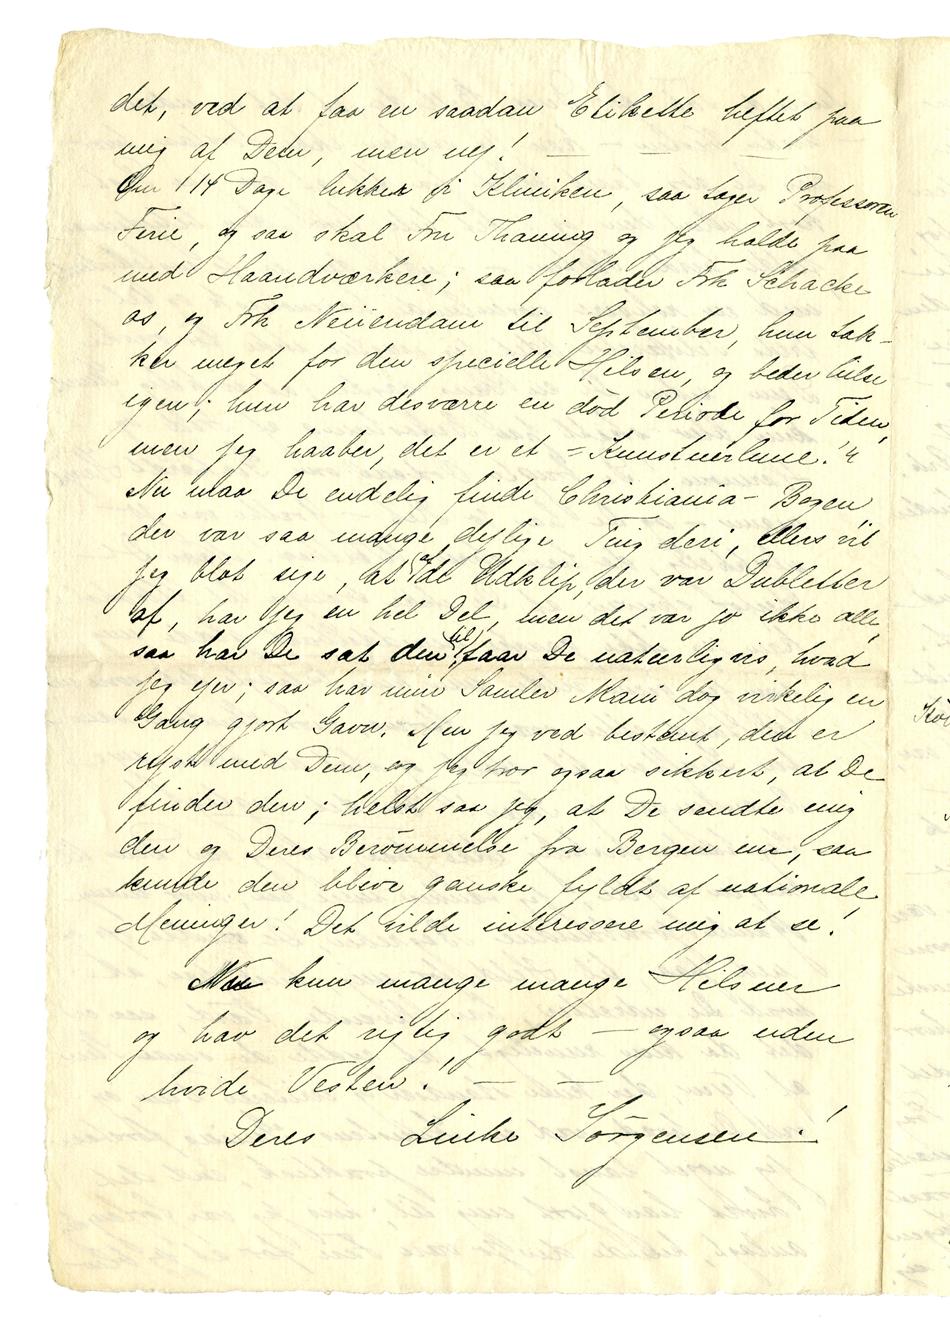 det, ved at faa en saadan Etikette heftet paa
mig af Dem, men nej! — — —
Om 14 Dage lukker vi Kliniken, saa tager Professoren
Ferie, og saa skal Fru Thaning og jeg holde paa
med Haandværkere; saa forlader Frk Schacke
os, og Frk Neiiendam til September, hun tak-
ker meget for den specielle Hilsen, og beder hilse
igen; hun har desværre en död Periode for Tiden,
men jeg haaber, det er et = Kunstnerlune!"
Nu maa De endelig finde Christiania-Bogen
der var saa mange dejlige Ting deri, ellers vil
jeg blot sige, at af de Udklip, der var Dubletter
af, har jeg en hel Del, men det var jo ikke alle,
saa har De sat den til, faar De naturligvis, hvad
jeg ejer; saa har min Samler Mani dog virkelig en
Gang gjort Gavn. Men jeg ved bestemt, den er
rejst med Dem, og jeg tror ogsaa sikkert, at De
finder den; helst saa jeg, at De sendte mig
den og Deres Berömmelse fra Bergen , saa
kunde den blive ganske fyldt af nationale
Meninger! Det vilde interessere mig at se!
Nu kun mange mange Hilsner
og hav det rigtig godt — ogsaa uden
hvide Vesten! — —
Deres Linke Sörgensen!
Kö